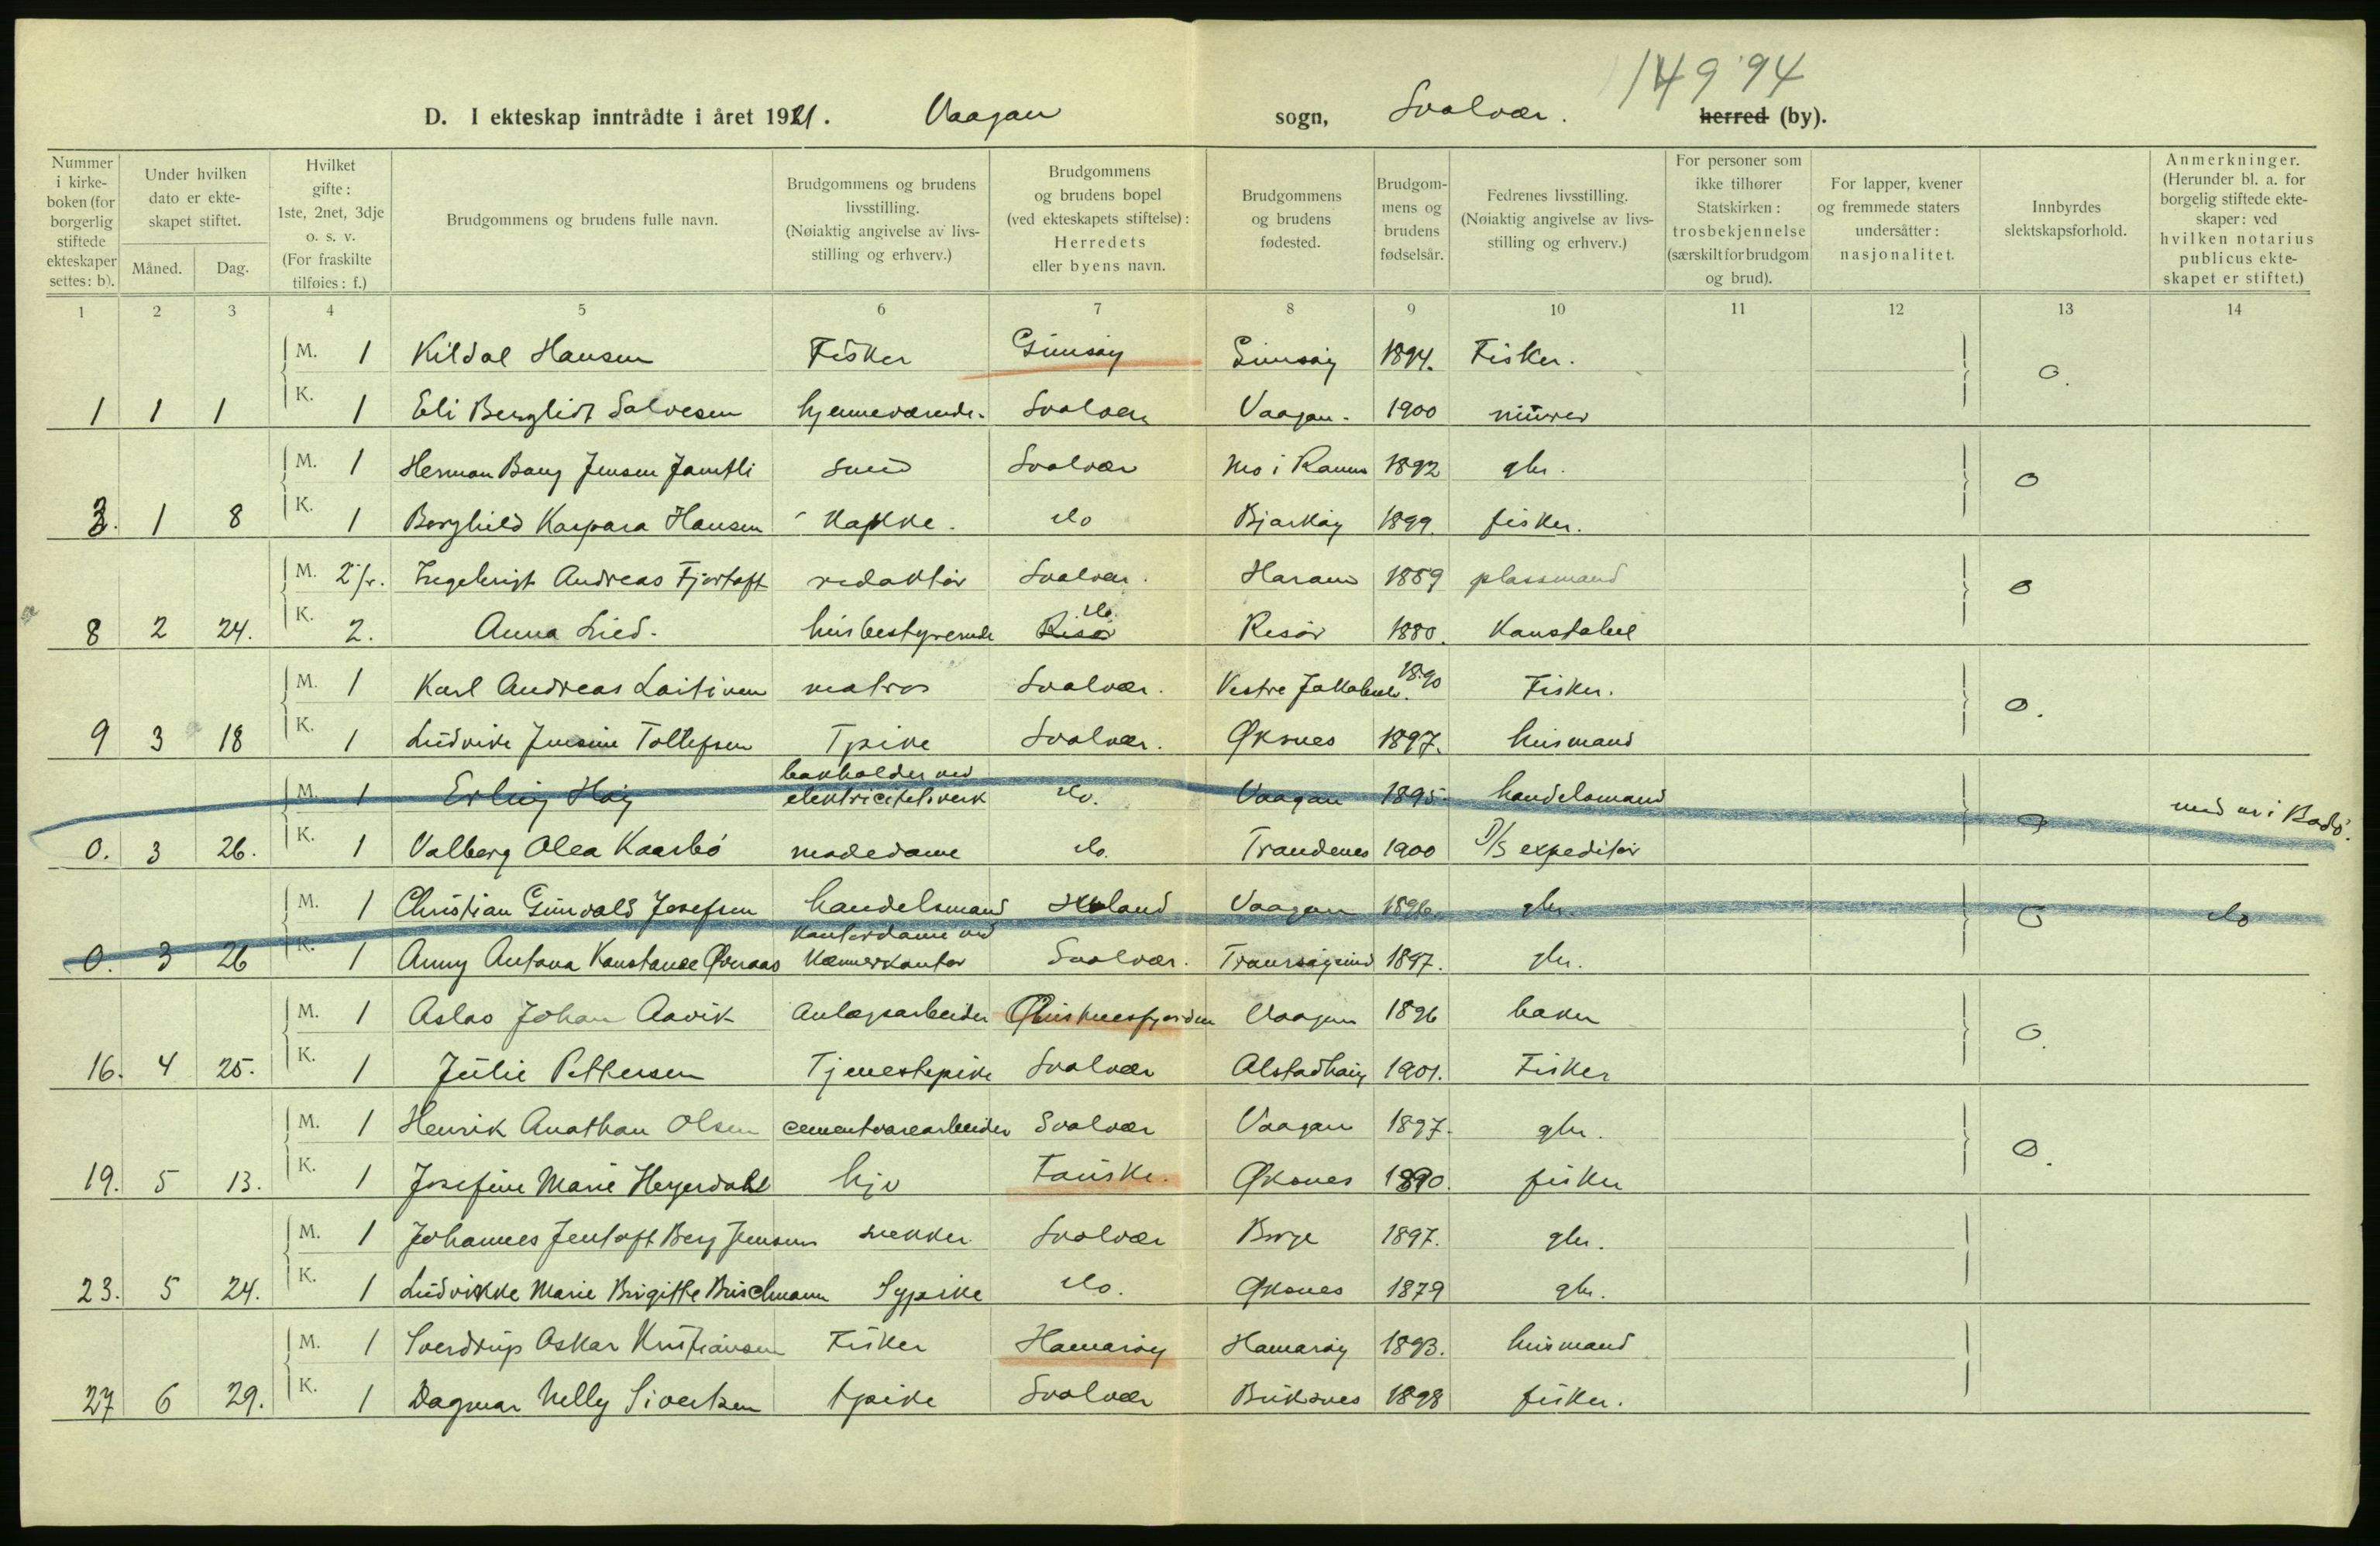 149 94
D. I ekteskap inntrådte i året 1921. Vaagan sogn, Svolvær. herred (by).
Nummer i kirkeboken (for borgerlig stiftede ekteskaper settes: b).
Under hvilken dato er ekteskapet stiftet.
Måned. Dag.
Hvilket gifte: 1ste, 2net, 3dje o. s. v. (For fraskilte tilføies: f.)
Brudgommens og brudens fulle navn.
Brudgommens og brudens livsstilling. (Nøiaktig angivelse av livsstilling og erhverv.)
Brudgommens og brudens bopel (ved ekteskapets stiftelse): Herredets eller byens navn.
Brudgommens og brudens fødested.
Brudgommens og brudens fødselsår.
Fedrenes livsstilling. (Nøiaktig angivelse av livsstilling og erhverv.)
For personer som ikke tilhører Statskirken: trosbekjennelse (særskilt for brudgom og brud).
For lapper, kvener og fremmede staters undersåtter: nasjonalitet.
Innbyrdes slektskapsforhold.
Anmerkninger. (Herunder bl. a. for borgelig stiftede ekteskaper: ved hvilken notarius publicus ekteskapet er stiftet.)
1 2 3 4 5 6 7 8 9 10 11 12 13 14
M. 1 Kildal Hansen Fisker Gimsøy Gimsøy 1894. Fisker. 0.
1 1 1 K. 1 Eli Berglidt Salvesen hjemmeværende. Svolvær Vaagan. 1900 murer
M. 1 Herman Bang Jensen Jamtli smed Svolvær Mo i Ranen 1892 gbr. 0
3. 1 8 K. 1 Borghild Kaspara Hansen kokke. do Bjarkøy 1899. fisker.
M. 2 fr. Ingebrigt Andreas Fjørtoft redaktør Svolvær. Haram 1889 plassmand 0
8 2 24. K. 2. Anna Lied. husbestyrerinde Risør do. Risør 1880. Konstabel
M. 1 Karl Andreas Laitinen matros Svolvær. Vestre Jakobselv. 1890 Fisker. 0.
9 3 18 K. 1 Ludvike Jensine Tollefsen Tpike Svolvær. Øksnes 1897. husmand
M. 1 Erling Høy bokholder ved elektricitetsverk do. Vaagan 1895 handelsmand 0 med nr i Bodø.
0. 3 26. K. 1 Valberg Olea Kaarbø motedame do. Trondenes 1900 D/S expeditør
M. 1 Christian Gunvald Josefsen handelsmand Vaagan 1896. gbr. 0 do
0. 3 26 K. 1 Anny Antona Konstanse Øveraas kontordame ved kemnerkontor Svolvær. Tranøy 1897. gbr.
M. 1 Aslao Johan Aavik Anlegsarbeider Øihisnesfjorden Vaagan 1896 baker 0
16. 4 25. K. 1 Julie Pettersen Tjenestepike Svolvær Alstadhaug 1901. Fisker
M. 1 Henrik Anathan Olsen cementvarearbeider Svolvær Vaagan 1897. gbr. 0.
19. 5 13. K. 1 Josefine Marie Heyerdahl hjv Fauske. Øksnes 1890. fisker
M. 1 Johannes Jentoft Berg Jensen snekker Svolvær Borge 1897. gbr.
23. 5 24. K. 1 Ludvikke Marie Birgitte Buschmann Sypike do. Øksnes 1879 gbr.
M. 1 Sverdrup Oskar Kristiansen Fisker Hamarøy Hamarøy 1893. husmand
27 6 29. K. 1 Dagmar Nelly Sivertsen tpike Svolvær Buksnes 1898 fisker.